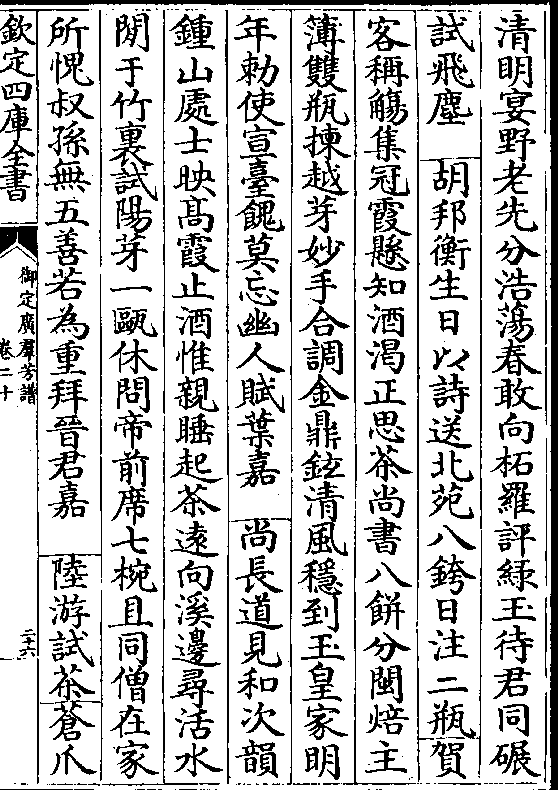 清明宴野老先分浩蕩春敢向柘羅評綠玉待君同碾
試飛塵　胡邦衡生日以詩送北苑八銙日注二瓶賀
客稱觴集冠霞懸知酒渴正思茶尚書八餅分閩焙主
簿雙瓶揀越芽妙手合調金鼎鉉清風穩到玉皇家明
年勅使宣臺餽莫忘幽人賦葉嘉　尚長道見和次韻
鍾山處士映髙霞止酒惟親睡起茶遠向溪邊尋活水
閒于竹裏試陽芽一甌休問帝前席七椀且同僧在家
所愧叔孫無五善若為重拜晉君嘉　陸游試茶蒼爪
欽定四庫全書
御定廣羣芳譜
卷二十
二十六